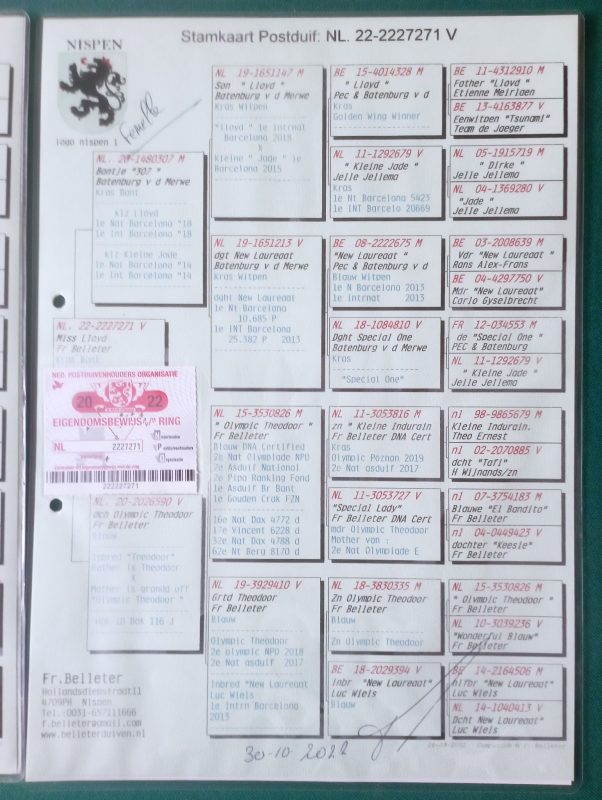 NISPEN
Stamkaart Postduif: NL. 22-2227271 V
Femelle
logo nispen 1
NL. 20-1480307 M
Bontje "307 "
Batenburg v d Merwe
Kras Bont
klz Lloyd
1e Nat Barcelona "18
1e Int Barcelona "18
klz Kleine Jade
1e Nat Barcelona "14
1e Int Barcelona "14
NL. 22-2227271 V
Miss Lloyd
Fr Belleter
Kras Bont
NED. POSTDUIVENHOUDERS ORGANISATIE
20 22
EIGENDOMSBEWIJS v/e RING
NL 2227271
222227271
NL. 20-2026590 V
dch Olympic Theodoor
Fr Belleter
Blauw
Inbred "Theodoor"
Father is Theodoor
X
Mother is grandd off
"Olympic Theodoor "
NL 19-1651147 M
Son " Lloyd "
Batenburg v d Merwe
Kras Witpen
"Lloyd " 1e intrnat
Barcelona 2018
X
Kleine " Jade " 1e
Barcelona 2015
NL 19-1651213 V
dgt New Laureaat
Batenburg v d Merwe
Kras Witpen
dght New Laureaat
1e Nt Barcelona
10.685 P
1e INT Barcelona
25.382 P 2013
NL 15-3530826 M
" Olympic Theodoor "
Fr Belleter
Blauw DNA Certified
2e Nat Olympiade NPU
2e Asduif National
2e Pipa Ranking Fond
1e Asduif Br Bant
1e Gouden Crak FZN
16e Nat Dax 4772 d
17e Vincent 6228 d
32e Nat Dax 4788 d
62e Nt Berg 8170 d
NL 19-3929410 V
Grtd Theodoor
Fr Belleter
Blauw
Olympic Theodoor
2e olympic NPO 2018
2e Nat asduif 2017
Inbred "New Laureaat
Luc Wiels
1e Intrn Barcelona
2013
BE 15-4014328 M
" Lloyd "
Pec & Batenburg v d
Kras
Golden Wing Winner
NL 11-1292679 V
" Kleine Jade "
Jelle Jellema
Kras
1e Nt Barcelona 5423
1e INT Barcelo 20669
BE 08-2222675 M
"New Laureaat "
Pec & Batenburg v d
Blauw Witpen
1e N Barcelona 2013
1e intrnat 2013
NL 18-1084810 V
Dght Special One
Batenburg v d Merwe
Kras
"Special One"
NL 11-3053816 M
zn " Kleine Indurain
Fr Belleter DNA Cert
Kras
Olympic Poznan 2019
2e Nat asduif 2017
NL 11-3053727 V
"Special Lady"
Fr Belleter DNA Cert
mdr Olympic Theodoor
Mother van :
2e Nat Olympiade E
NL 18-3830335 M
Zn Olympic Theodoor
Fr Belleter
Blauw
Zn Olympic Theodoor
BE 18-2029394 V
inbr "New Laureaat"
Luc Wiels
Blauw
BE 11-4312910 M
Father "Lloyd"
Etienne Meirlaen
BE 13-4163877 V
Eenwitpen "Tsunami"
Team de Jaeger
NL 05-1915719 M
" Dirke "
Jelle Jellema
NL 04-1369280 V
"Jade "
Jelle Jellema
BE 03-2008639 M
Vdr "New Laureaat "
Rans Alex-Frans
BE 04-4297750 V
Mdr "New Laureaat"
Carlo Gyselbrecht
FR 12-034553 M
de "Special One"
PEC & Batenburg
NL 11-1292679 V
" Kleine Jade "
Jelle Jellema
nl 98-9865679 M
Kleine Indurain.
Theo Ernest
nl 02-2070885 V
dcht "Tafi"
H Wijnands/zn
nl 07-3754183 M
Blauwe "El Bandito"
Fr Belleter
nl 04-0449423 V
dochter "Keesie"
Fr Belleter
NL 15-3530826 M
" Olympic Theodoor "
Fr Belleter
NL 10-3039236 V
"Wonderful Blauw"
Fr Belleter
BE 14-2164506 M
Luc Wiels
NL 14-1040413 V
Dcht New Laureaat"
Luc Wiels
Fr.Belleter
4709PH Nispen
Tel.:0031-657111666
f.belleter@gmail.com
www.belleterduiven.nl
30-10-2022